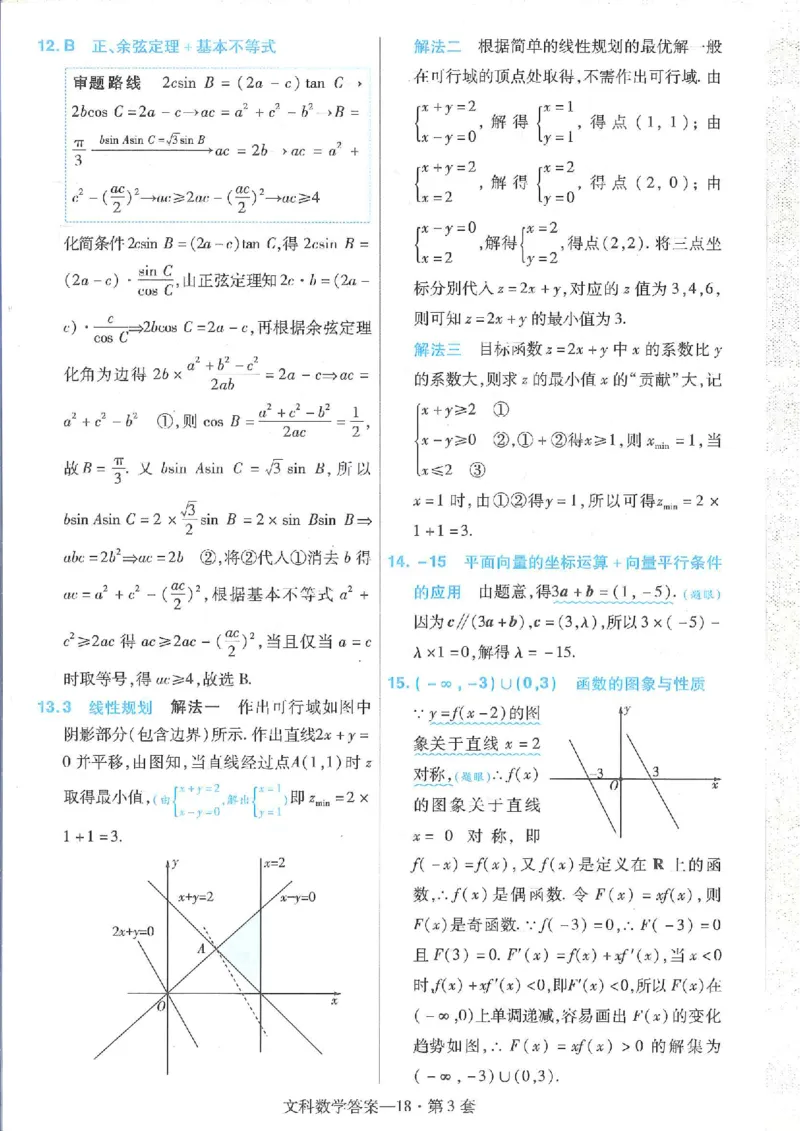 12.B 正、余弦定理+基本不等式
审题路线 2csin B = (2a - c)tan C →
2bcos C=2a - c→ac = a² + c² - b²→B =
π/3 —bsin Asin C=√3sin B→ ac = 2b → ac = a² +
c² - (ac/2)²→ac≥2ac - (ac/2)²→ac≥4
化简条件2csin B=(2a-c)tan C,得 2csin B =
(2a - c) · sin C/cos C,由正弦定理知2c·b=(2a-
c)·c/cos C⇒2bcos C=2a-c,再根据余弦定理
化角为边得 2b × (a²+b²-c²)/2ab = 2a - c⇒ac =
a² + c² - b² ①,则 cos B = (a²+c²-b²)/2ac = 1/2,
故B = π/3. 又 bsin Asin C = √3 sin B, 所以
bsin Asin C = 2 × √3/2 sin B = 2 × sin Bsin B⇒
abc = 2b²⇒ac = 2b ②,将②代入①消去 b 得
ac = a² + c² - (ac/2)²,根据基本不等式 a² +
c²≥2ac 得 ac≥2ac - (ac/2)²,当且仅当 a = c
时取等号,得 ac≥4,故选 B.
13.3 线性规划 解法一 作出可行域如图中
阴影部分(包含边界)所示.作出直线2x + y =
0 并平移,由图知,当直线经过点A(1,1)时 z
取得最小值,(由{x+y=2 x-y=0,解出{x=1 y=1)即 z min = 2 ×
1+1=3.
y
x=2
x+y=2
x-y=0
2x+y=0
A
O
x
解法二 根据简单的线性规划的最优解一般
在可行域的顶点处取得,不需作出可行域.由
{x+y=2 x-y=0, 解得 {x=1 y=1, 得点 (1, 1); 由
{x+y=2 x=2, 解得 {x=2 y=0, 得点 (2, 0); 由
{x-y=0 x=2,解得{x=2 y=2,得点(2,2).将三点坐
标分别代入 z=2x+y,对应的 z 值为 3,4,6,
则可知 z=2x+y 的最小值为 3.
解法三 目标函数 z=2x+y 中 x 的系数比 y
的系数大,则求 z 的最小值 x 的“贡献”大,记
{x+y≥2 ①
x-y≥0 ②,①+②得x≥1,则 x min = 1,当
x≤2 ③
x=1 时,由①②得y=1,所以可得z min = 2 ×
1+1=3.
14. -15 平面向量的坐标运算+向量平行条件
的应用 由题意,得3a+b=(1,-5).(题眼)
因为c∥(3a+b),c=(3,λ),所以3×(-5)-
λ×1=0,解得 λ = -15.
15. (-∞,-3)∪(0,3) 函数的图象与性质
∵ y=f(x-2)的图
象关于直线 x = 2
对称,(题眼)∴f(x)
的图象关于直线
x = 0 对称, 即
y
-3
O
3
x
f(-x)=f(x),又f(x)是定义在 R 上的函
数,∴f(x)是偶函数.令 F(x) = xf(x),则
F(x)是奇函数.∵f(-3)=0,∴F(-3)=0
且 F(3)=0. F′(x)=f(x)+xf′(x),当x<0
时,f(x)+xf′(x)<0,即F′(x)<0,所以F(x)在
(-∞,0)上单调递减,容易画出 F(x)的变化
趋势如图,∴ F(x) = xf(x) > 0 的解集为
(-∞,-3)∪(0,3).
文科数学答案—18·第3套